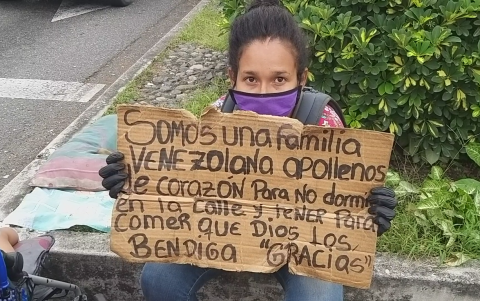 SOMOS UNA FAMILIA
VENEZOLANA APOLLENOS
de CORAZÓN PARA NO DORMI
en la Calle y TENER PARA
COMER QUE DIOS LOS
BENDIGA "GRACIAS"